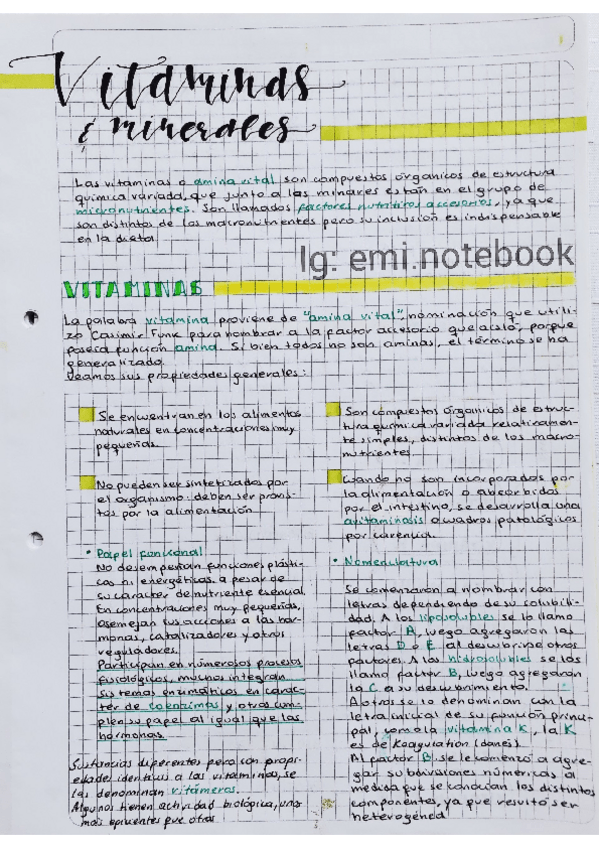 Vitaminas
& minerales
Las vitaminas o amina vital son compuestos orgánicos de estructura
química variada, que junto a las minares están en el grupo de
micronutrientes. Son llamados factores nutritivos accesorios, ya que
son distintos de los macronutrientes pero su inclusión es indispensable
en la dieta
Ig: emi.notebook
VITAMINAS
La palabra vitamina proviene de "amina vital", nominación que utili-
zó Casimir Funk para nombrar a la factor accesorio que aisló, porque
poseía función amina. Si bien todos no son aminas, el término se ha
generalizado.
Veamos sus propiedades generales:
Se encuentran en los alimentos
naturales en concentraciones muy
pequeñas.
No pueden ser sintetizados por
el organismo: deben ser provis-
tos por la alimentación
• Papel funcional
No desempeñan funciones plásti-
cas ni energéticas a pesar de
su carácter de nutriente esencial.
En concentraciones muy pequeñas,
asemejan sus acciones a las hor-
monas, catalizadores y otros
reguladores.
Participan en numerosos procesos
fisiológicos, muchos integran
sistemas enzimáticos en carác-
ter de coenzimas y otros cum-
plen su papel al igual que las
hormonas.
Sustancias diferentes pero con propi-
edades idénticas a las vitaminas, se
las denominan vitámeros.
Algunos tienen actividad biológica, unos
más eficientes que otros
Son compuestos orgánicos de estruc-
tura química variada relativamen-
te simples, distintos de los macro-
nutrientes.
Cuando no son incorporados por
la alimentación o absorbidos
por el intestino, se desarrolla una
avitaminosis o cuadros patológicos
por carencia.
• Nomenclatura
Se comenzaron a nombrar con
letras dependiendo de su solubili-
dad. A los liposolubles se lo llamo
factor A, luego agregaron las
letras D o E al descubrirse otros
factores. A los hidrosolubles se los
llamo factor B, luego agregaron
la C a su descubrimiento.
A otros se lo denominan con la
letra inicial de su función princi-
pal, como la vitamina K, la K
es de Koagulation (danés).
Al factor B se le comenzó a agre-
gar subdivisiones numéricas a
medida que se conocían los distintos
componentes, ya que resultó ser
heterogénea